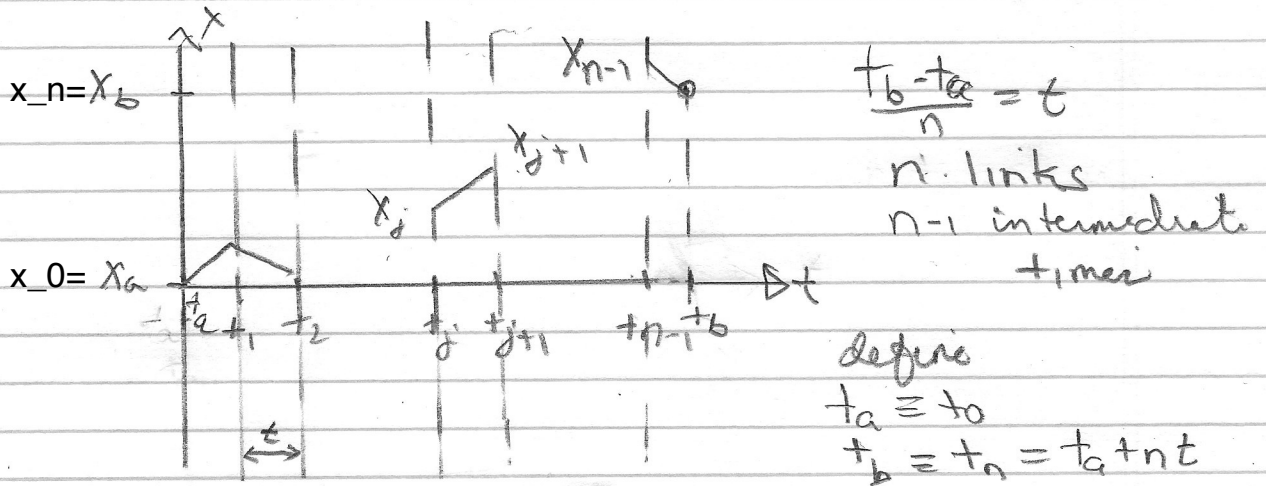 x
x_n=x_b
x_{n-1}
x_{j+1}
x_j
x_0= x_a
t_a t_1 t_2 t_j t_{j+1} t_{n-1} t_b
t
t
(t_b-t_a)/n = t
n links
n-1 intermediate
times
define
t_a ≡ t_0
t_b ≡ t_n = t_a+nt